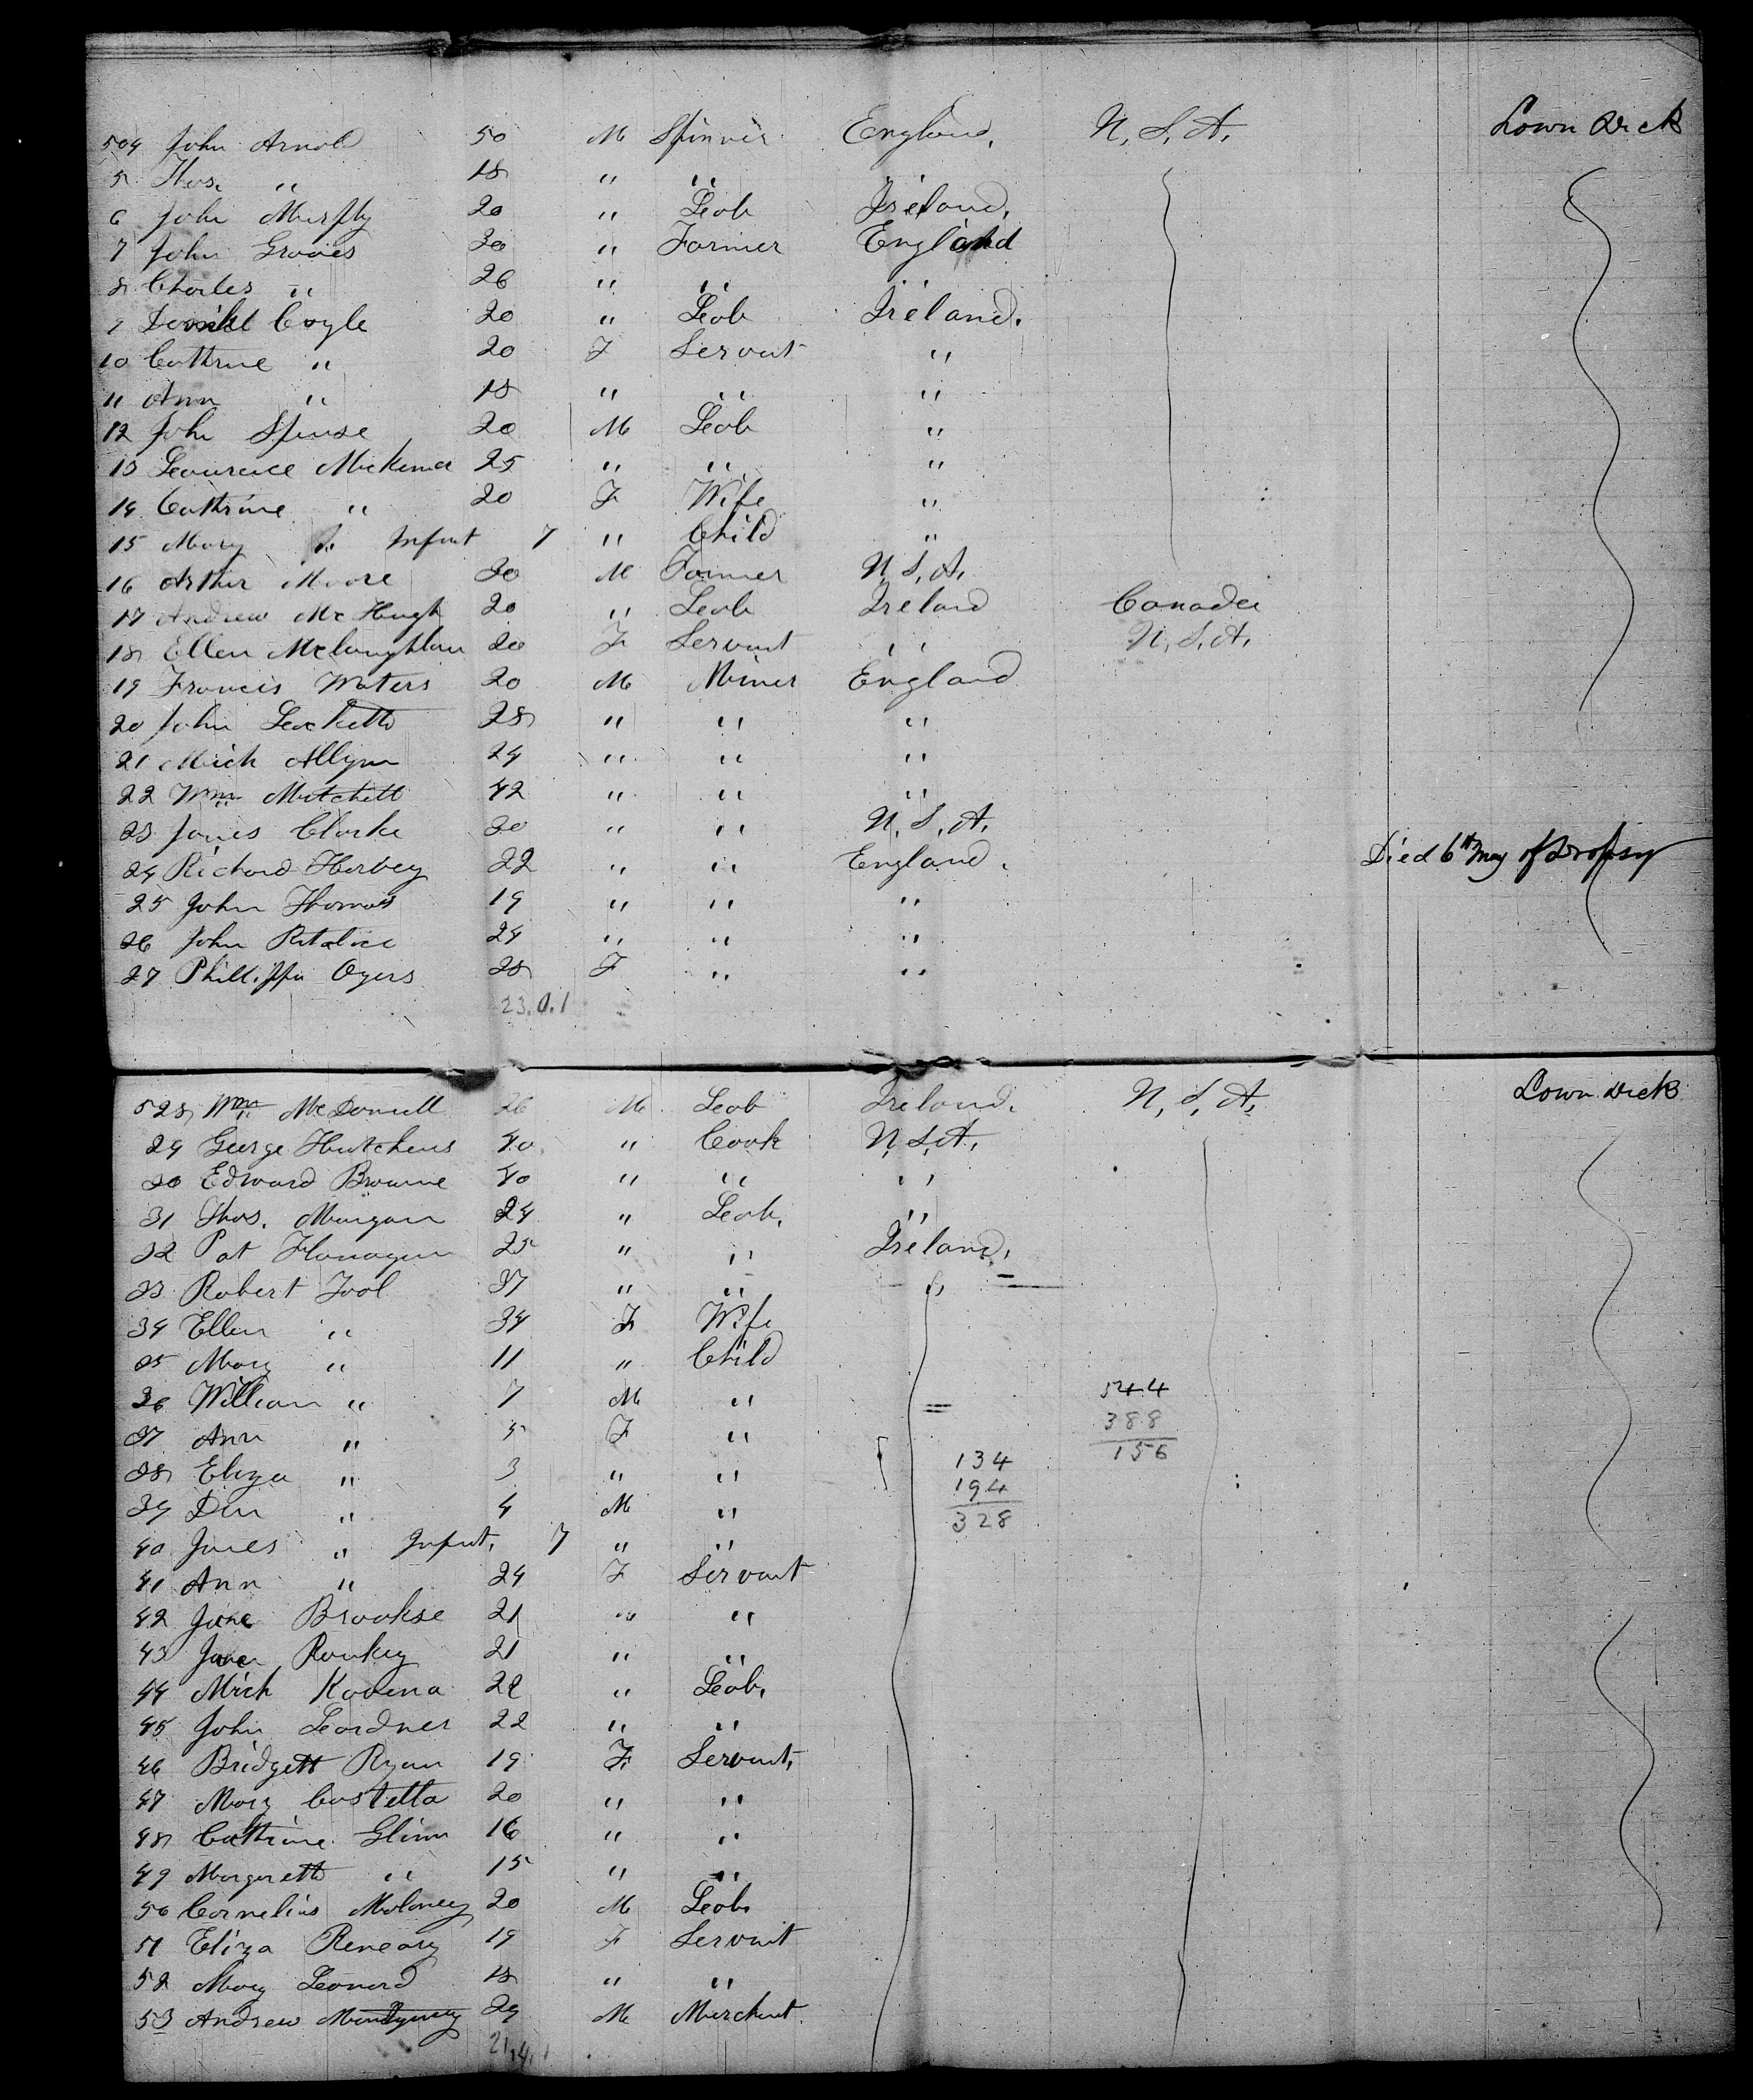 504 John Arnold 50 M Spinner England. U.S.A. Lown Deck
5 Thos. " 18 " "
6 John Murphy 20 " Leob Ireland.
7 John Groves 30 " Farmer England
8 Charles " 26 " " "
9 Coyle 20 " Leob Ireland.
10 Cathrine " 20 F Servant "
11 Ann " 18 " " "
12 John Spense 20 M Leob "
13 Lawrence McKenna 25 " " "
14 Cathrine " 20 F Wife "
15 Mary " Infant 7 " Child "
16 Arthur Moore 30 M Farmer U.S.A.
17 Andrew McHugh 20 " Leob Ireland Canada
18 Ellen Mclaughlan 20 F Servant " U.S.A.
19 Francis Waters 20 M Miner England
20 John 28 " " "
21 Mich Allyn 24 " " "
22 Wm Mitchell 42 " " "
23 James Clarke 30 " " U.S.A.
24 Richard Harvey 22 " " England. Died 6th May of Dropsy
25 John Thomas 19 " " "
26 John 24 " " "
27 Phillippa Oyers 28 F " "
23.0.1
528 Wm McDonnell 26 M Leob Ireland. U.S.A. Lown Deck
29 George Hutchens 40 " Cook U.S.A.
30 Edward Browne 40 " " "
31 Thos. Mungan 24 " Leob. "
32 Pat Flanagan 25 " " Ireland.
33 Robert Tool 37 " " "
34 Ellen " 34 F Wife
35 Mary " 11 " Child
36 William " 7 M " 544
37 Ann " 5 F " 388
38 Eliza " 3 " " 134 156
39 Dan " 4 M " 194
40 James " Infant. 7 " " 328
41 Ann " 24 F Servant
42 Jane Brookse 21 " "
43 Jane Rowkey 21 " "
44 Mich Kovena 22 " Leob.
45 John Leardner 22 " "
46 Bridgett Ryan 19 F Servant,
47 Mary Costella 20 " "
48 Cathrine Glinn 16 " "
49 Margareth " 15 " "
50 Cornelius Moloney 20 M Leob.
51 Eliza Reneary 19 F Servant
52 Mary Leonard 18 " "
53 Andrew Montgomery 29 M Merchant.
21.4.1